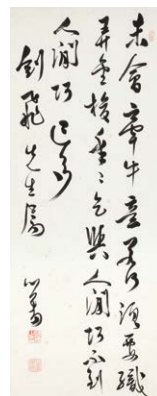 未會牽牛意若何須要織
弄金梭年〻乞與人間巧不到
人間巧已多
釗飛先生屬
心畬